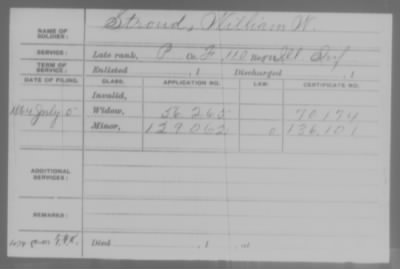 NAME OF SOLDIER: Stroud, William W.
SERVICE: Late rank, P Co. F, 110 Ill Inf
TERM OF SERVICE: Enlisted , 1 Discharged , 1
DATE OF FILING. CLASS. APPLICATION NO. LAW. CERTIFICATE NO.
Invalid,
1864 July 5 Widow, 56 265 70174
Minor, 129,062 136,101
ADDITIONAL SERVICES:
REMARKS:
Died , 1 , at